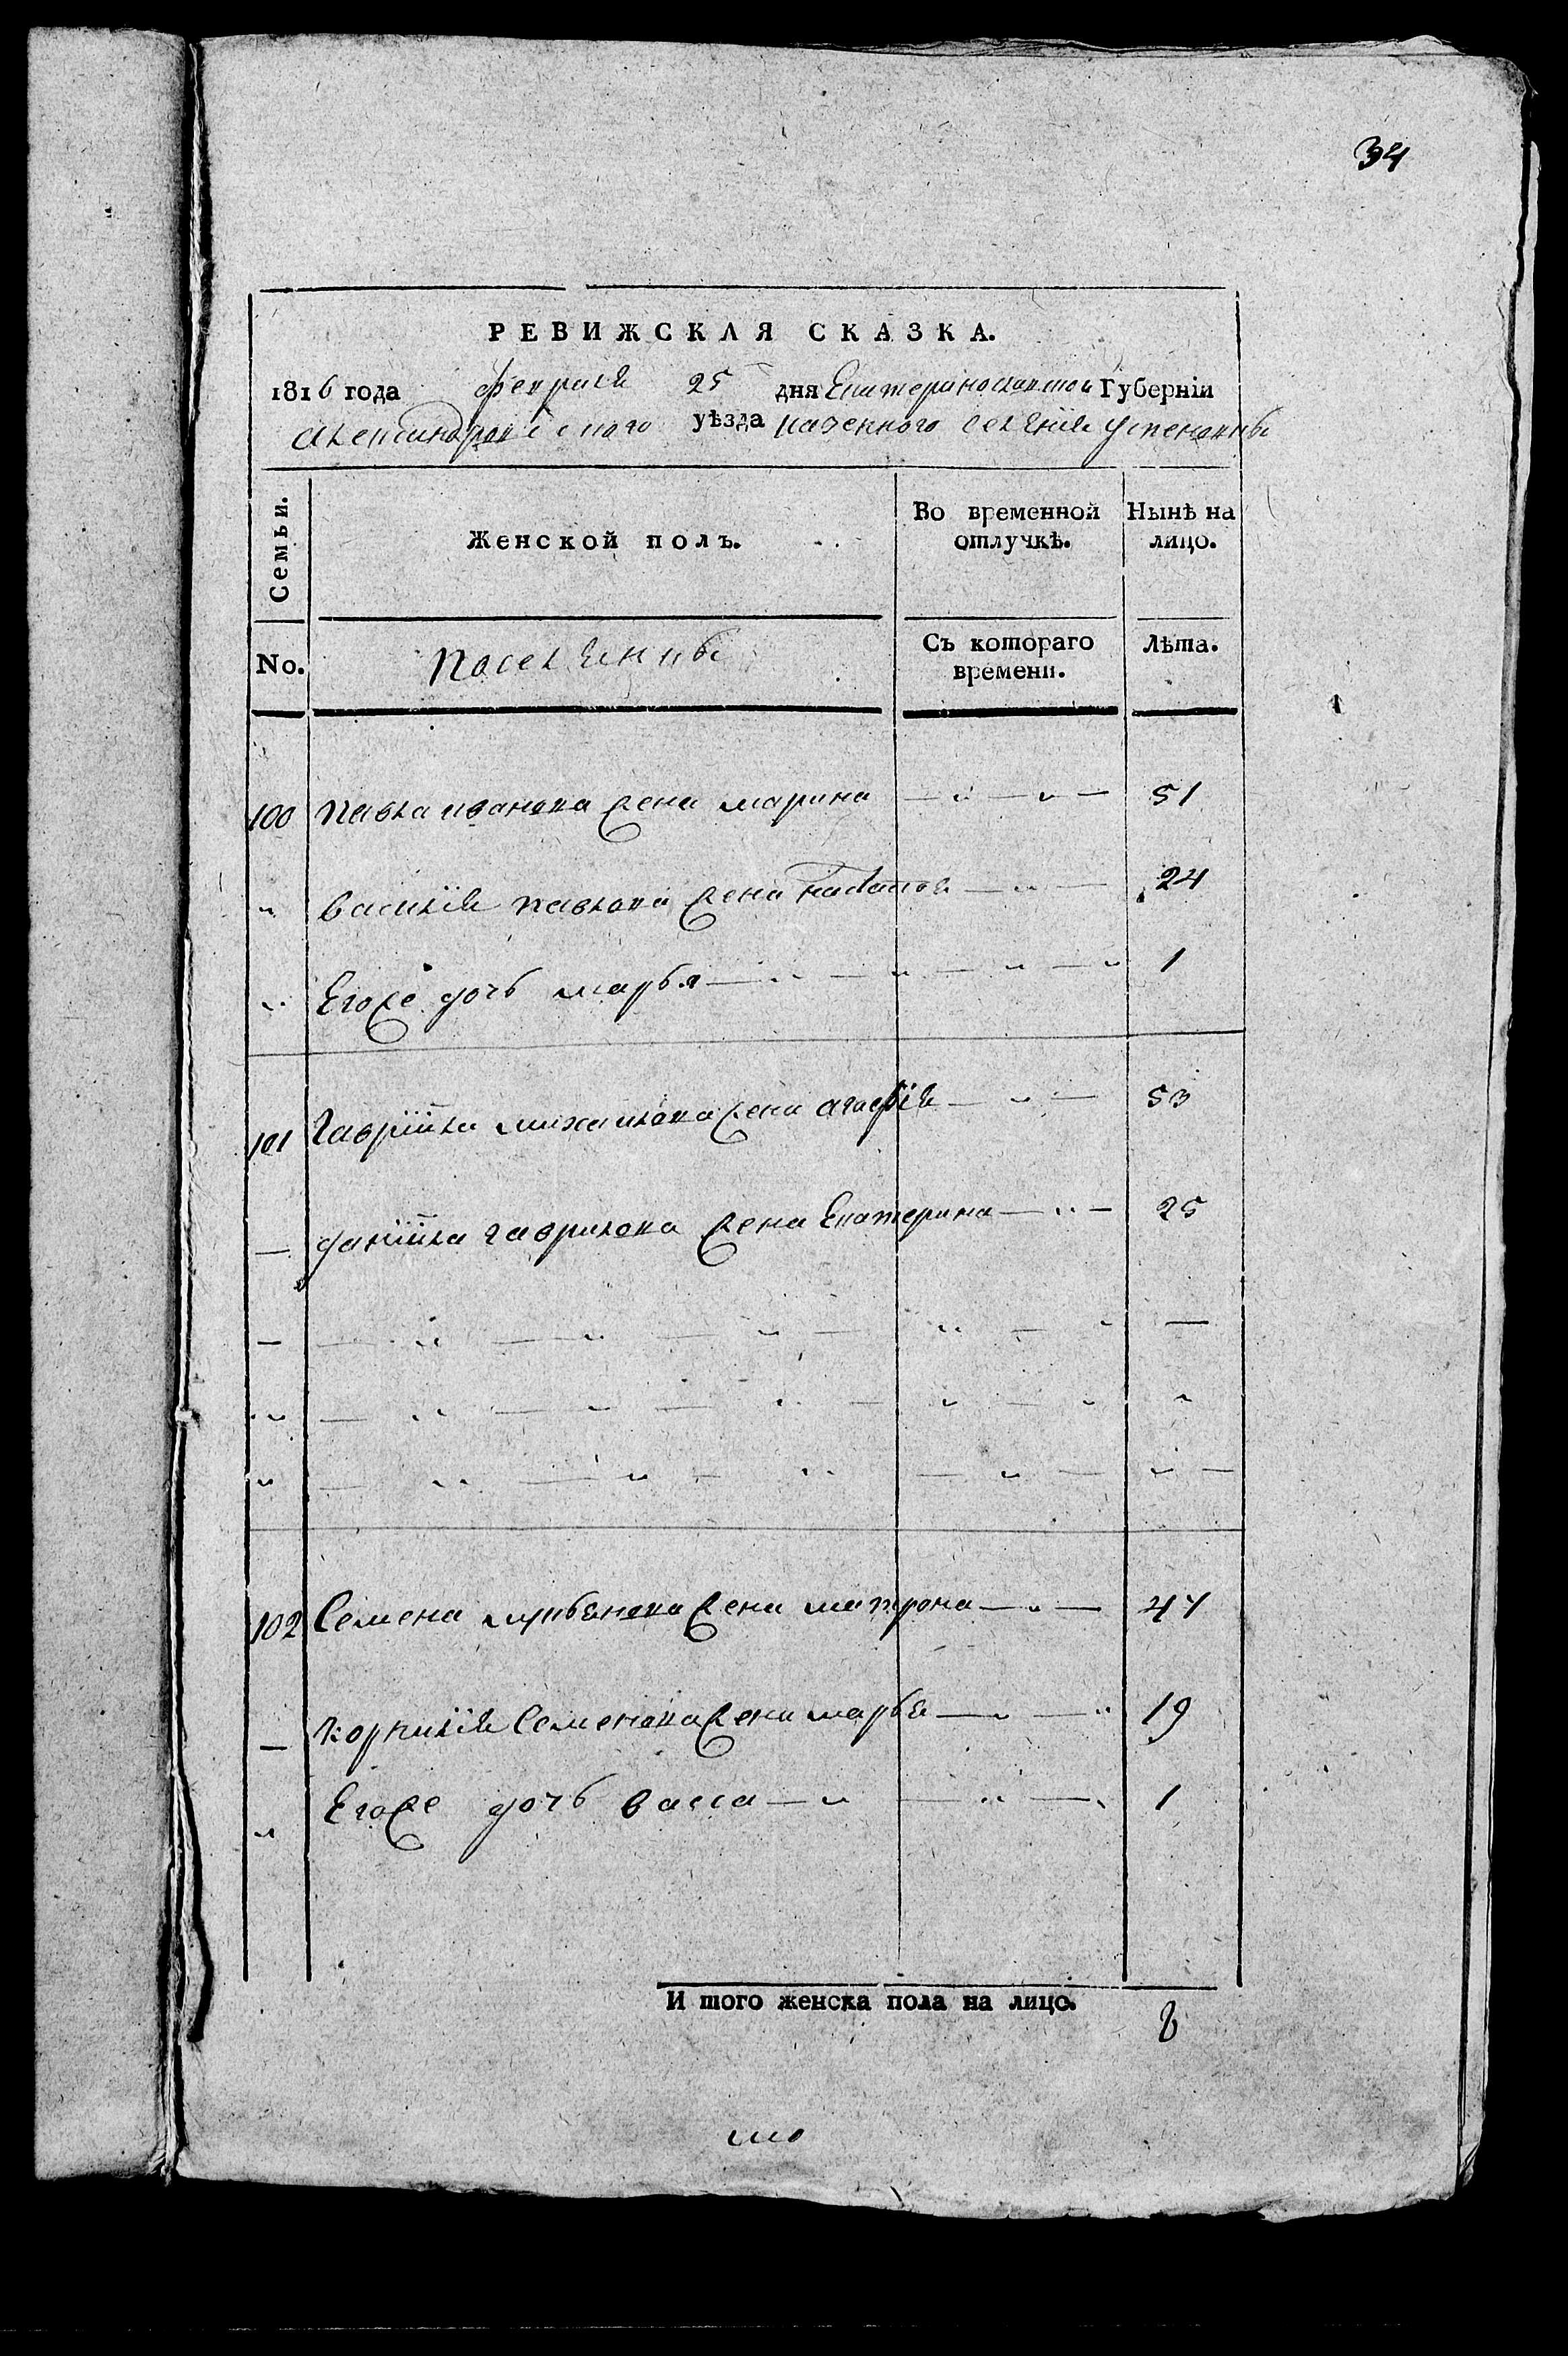 34
РЕВИЖСКАЯ СКАЗКА.
1816 года февраля 25 дня Екатеринославской Губернiи
Александровского уѣзда казенного селения Успеновки
Семьи.
Женской полъ.
Во временной отлучкѣ.
Нынѣ на лицо.
No.
поселянъки
Съ котораго времени.
Лѣта.
100 павла иванова жена марина — „ — „ — 51
„ василiя павлова жена наталия — „ — 24
„ Егоже дочь марья — „ — „ — „ — „ 1
101 гаврiила михаилова жена агафiя — „ — 53
— данiила гаврилова жена Екатерина — „ — 25
102 Семена жена матрона — „ — 47
— корнилiя Семенова жена марья — „ — „ 19
„ Егоже дочь васса — „ — „ — 1
И того женска пола на лицо. 8